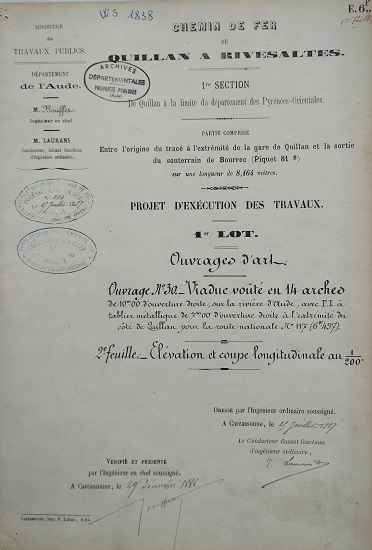 WS 1838
E.6
2e feuille
MINISTÈRE
DES
TRAVAUX PUBLICS.
DÉPARTEMENT
de l'Aude.
M. Bouffet
Ingénieur en chef.
M. LAURANS
Conducteur, faisant fonctions
d'Ingénieur ordinaire.
CHEMIN DE FER
DE
QUILLAN A RIVESALTES.
ARCHIVES
DÉPARTEMENTALES
PROPRIÉTÉ PUBLIQUE
(Aude)
1re SECTION
De Quillan à la limite du département des Pyrénées-Orientales.
PARTIE COMPRISE
Entre l'origine du tracé à l'extrémité de la gare de Quillan et la sortie
du souterrain de Bourrec (Piquet 81 )
sur une longueur de 8,464 mètres.
PROJET D'EXÉCUTION DES TRAVAUX.
1er LOT.
Ouvrages d'art.
Ouvrage No 30. Viaduc voûté en 14 arches
de 10m00 d'ouverture droite, sur la rivière d'Aude, avec P.I. à
tablier métallique de 7m00 d'ouverture droite à l'extrémité du
côté de Quillan, pour la route nationale No 117
2e feuille. Élévation et coupe longitudinale au 1/200
DRESSÉ par l'Ingénieur ordinaire soussigné.
A Carcassonne, le Juillet 1887
Le Conducteur faisant fonctions
d'ingénieur ordinaire,
VÉRIFIÉ ET PRÉSENTÉ
par l'Ingénieur en chef soussigné.
A Carcassonne, le 29 Décembre 1888